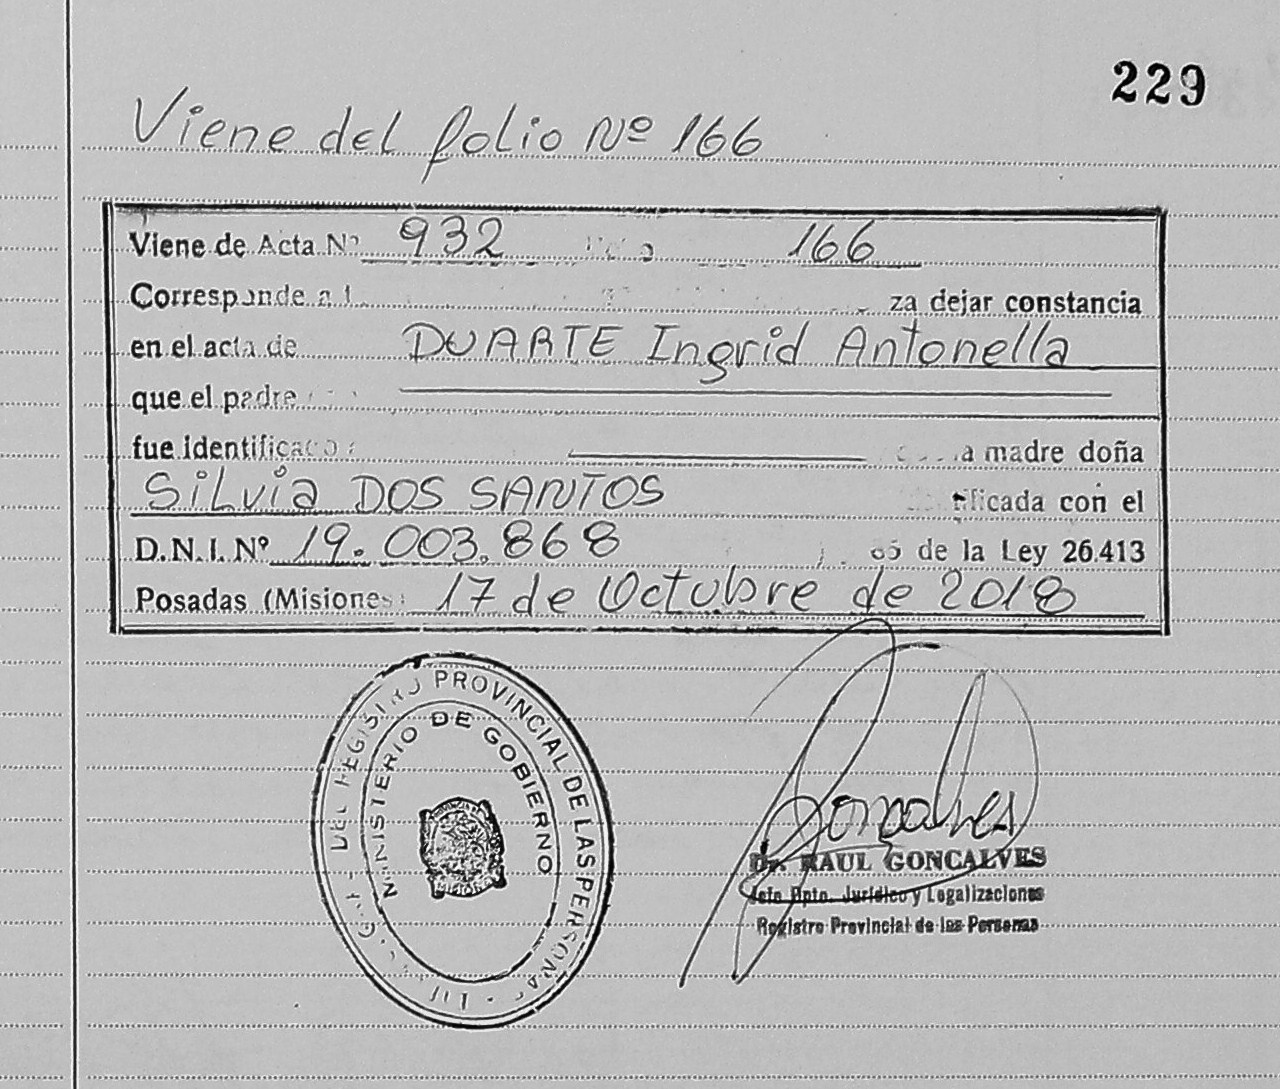 229
Viene del folio Nº 166
Viene de Acta Nº 932 166
Corresponde a l za dejar constancia
en el acta de DUARTE Ingrid Antonella
que el padre
fue identificado a madre doña
Silvia DOS SANTOS tificada con el
D.N.I. Nº 19.003.868 de la Ley 26.413
Posadas (Misiones) 17 de Octubre de 2018
DEL REGISTRO PROVINCIAL DE LAS PERSONAS
MINISTERIO DE GOBIERNO
MISIONES
Goncalves
Dr. RAUL GONCALVES
Jefe Dpto. Jurídico y Legalizaciones
Registro Provincial de las Personas